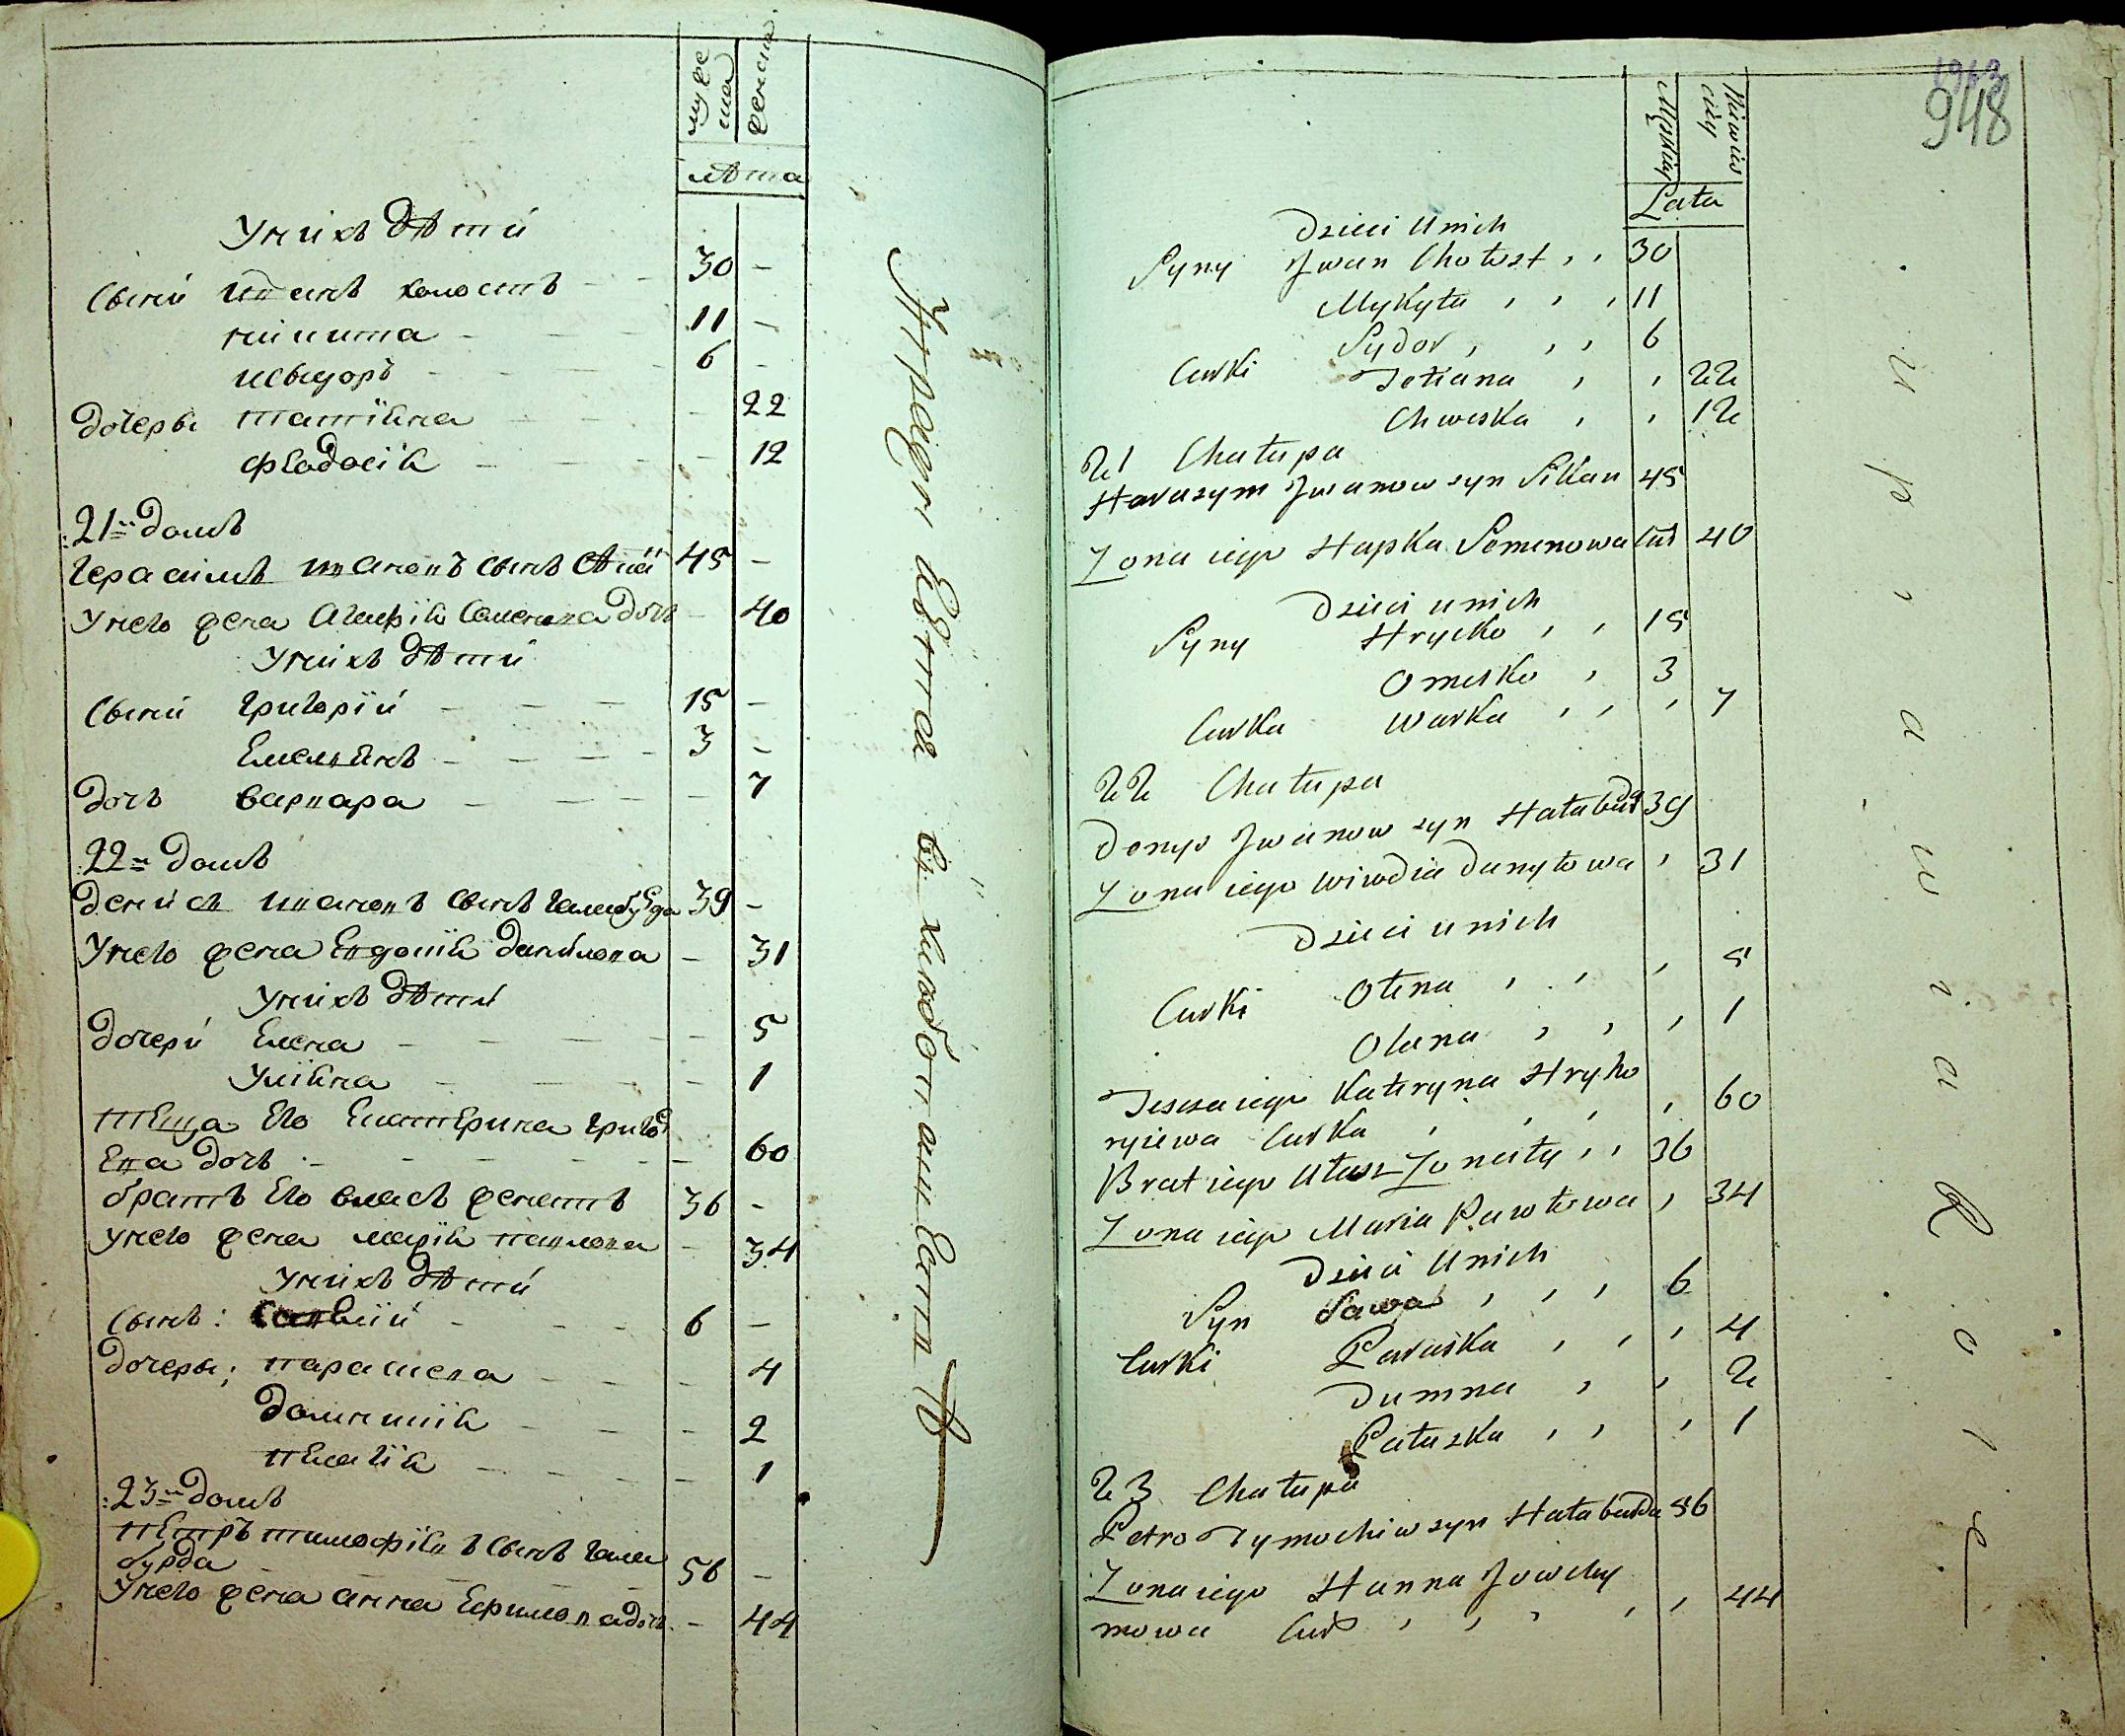 муже
ска
женска
лѣта
У них дѣти
сыни иван холостъ - - 30 -
никита - - - 11 -
исыдоръ - - - 6 -
дочеры татіяна - - - 22
феодосія - - - 12
21й домъ
герасимъ ивановъ сынъ 45 -
у него жена агафія семенова доч - 40
У нихъ дѣти
сыни григорій - - - 15 -
Емельянъ - - - 3 -
дочь варвара - - - 7
22й домъ
денисъ ивановъ сынъ галабурда 39 -
У него жена Евдокія данилова - 31
У нихъ дѣти
дочери Елена - - - 5
Уліяна - - - 1
тЕща Его Екатерина григор
Ева дочь - - - 60
братъ Его власъ женатъ 36 -
у него жена марія павлова - 34
У нихъ дѣти
сынъ: савелій - - 6 -
дочеры: параскева - - - 4
домникія - - - 2
пелагія - - - 1
23й домъ
петръ тимофіевъ сынъ гала
бурда - - - 56 -
У него жена анна Ефимова доч. - 44
948
Męskiey
Niewieś
ciey
Lata
Dzieci u nich
Syny Jwan Chołost , , 30
Mykyta , , , 11
Sydor , , , 6
Curki Tetiana , , 22
Chweska , , 12
21 Chałupa
Harasym Jwanow syn 45
Żona iego Hapka Semenowa Cur 40
Dzieci u nich
Syny Hrycko , , 15
Omelko , 3
Curka Warka , , , 7
22 Chałupa
Denys Jwanow syn Hałaburda 39
Żona iego Wiwdia Danyłowa , 31
Dzieci u nich
Curki Ołena , , , 5
Olana , , , 1
Teszcza iego Kateryna Hryho
ryiewa Curka , , , , 60
Brat iego Ułas Żonaty , , 36
Żona iego Maria Pawłowa , 34
Dzieci u nich
Syn Sawa , , , 6
Curki Paraska , , , 4
Dumna , , 2
Pałazka , , , 1
23 Chałupa
Petro Tymochiiw syn Hałaburda 56
Żona iego Hanna Jowchy
mowa Cur , , , , , 44